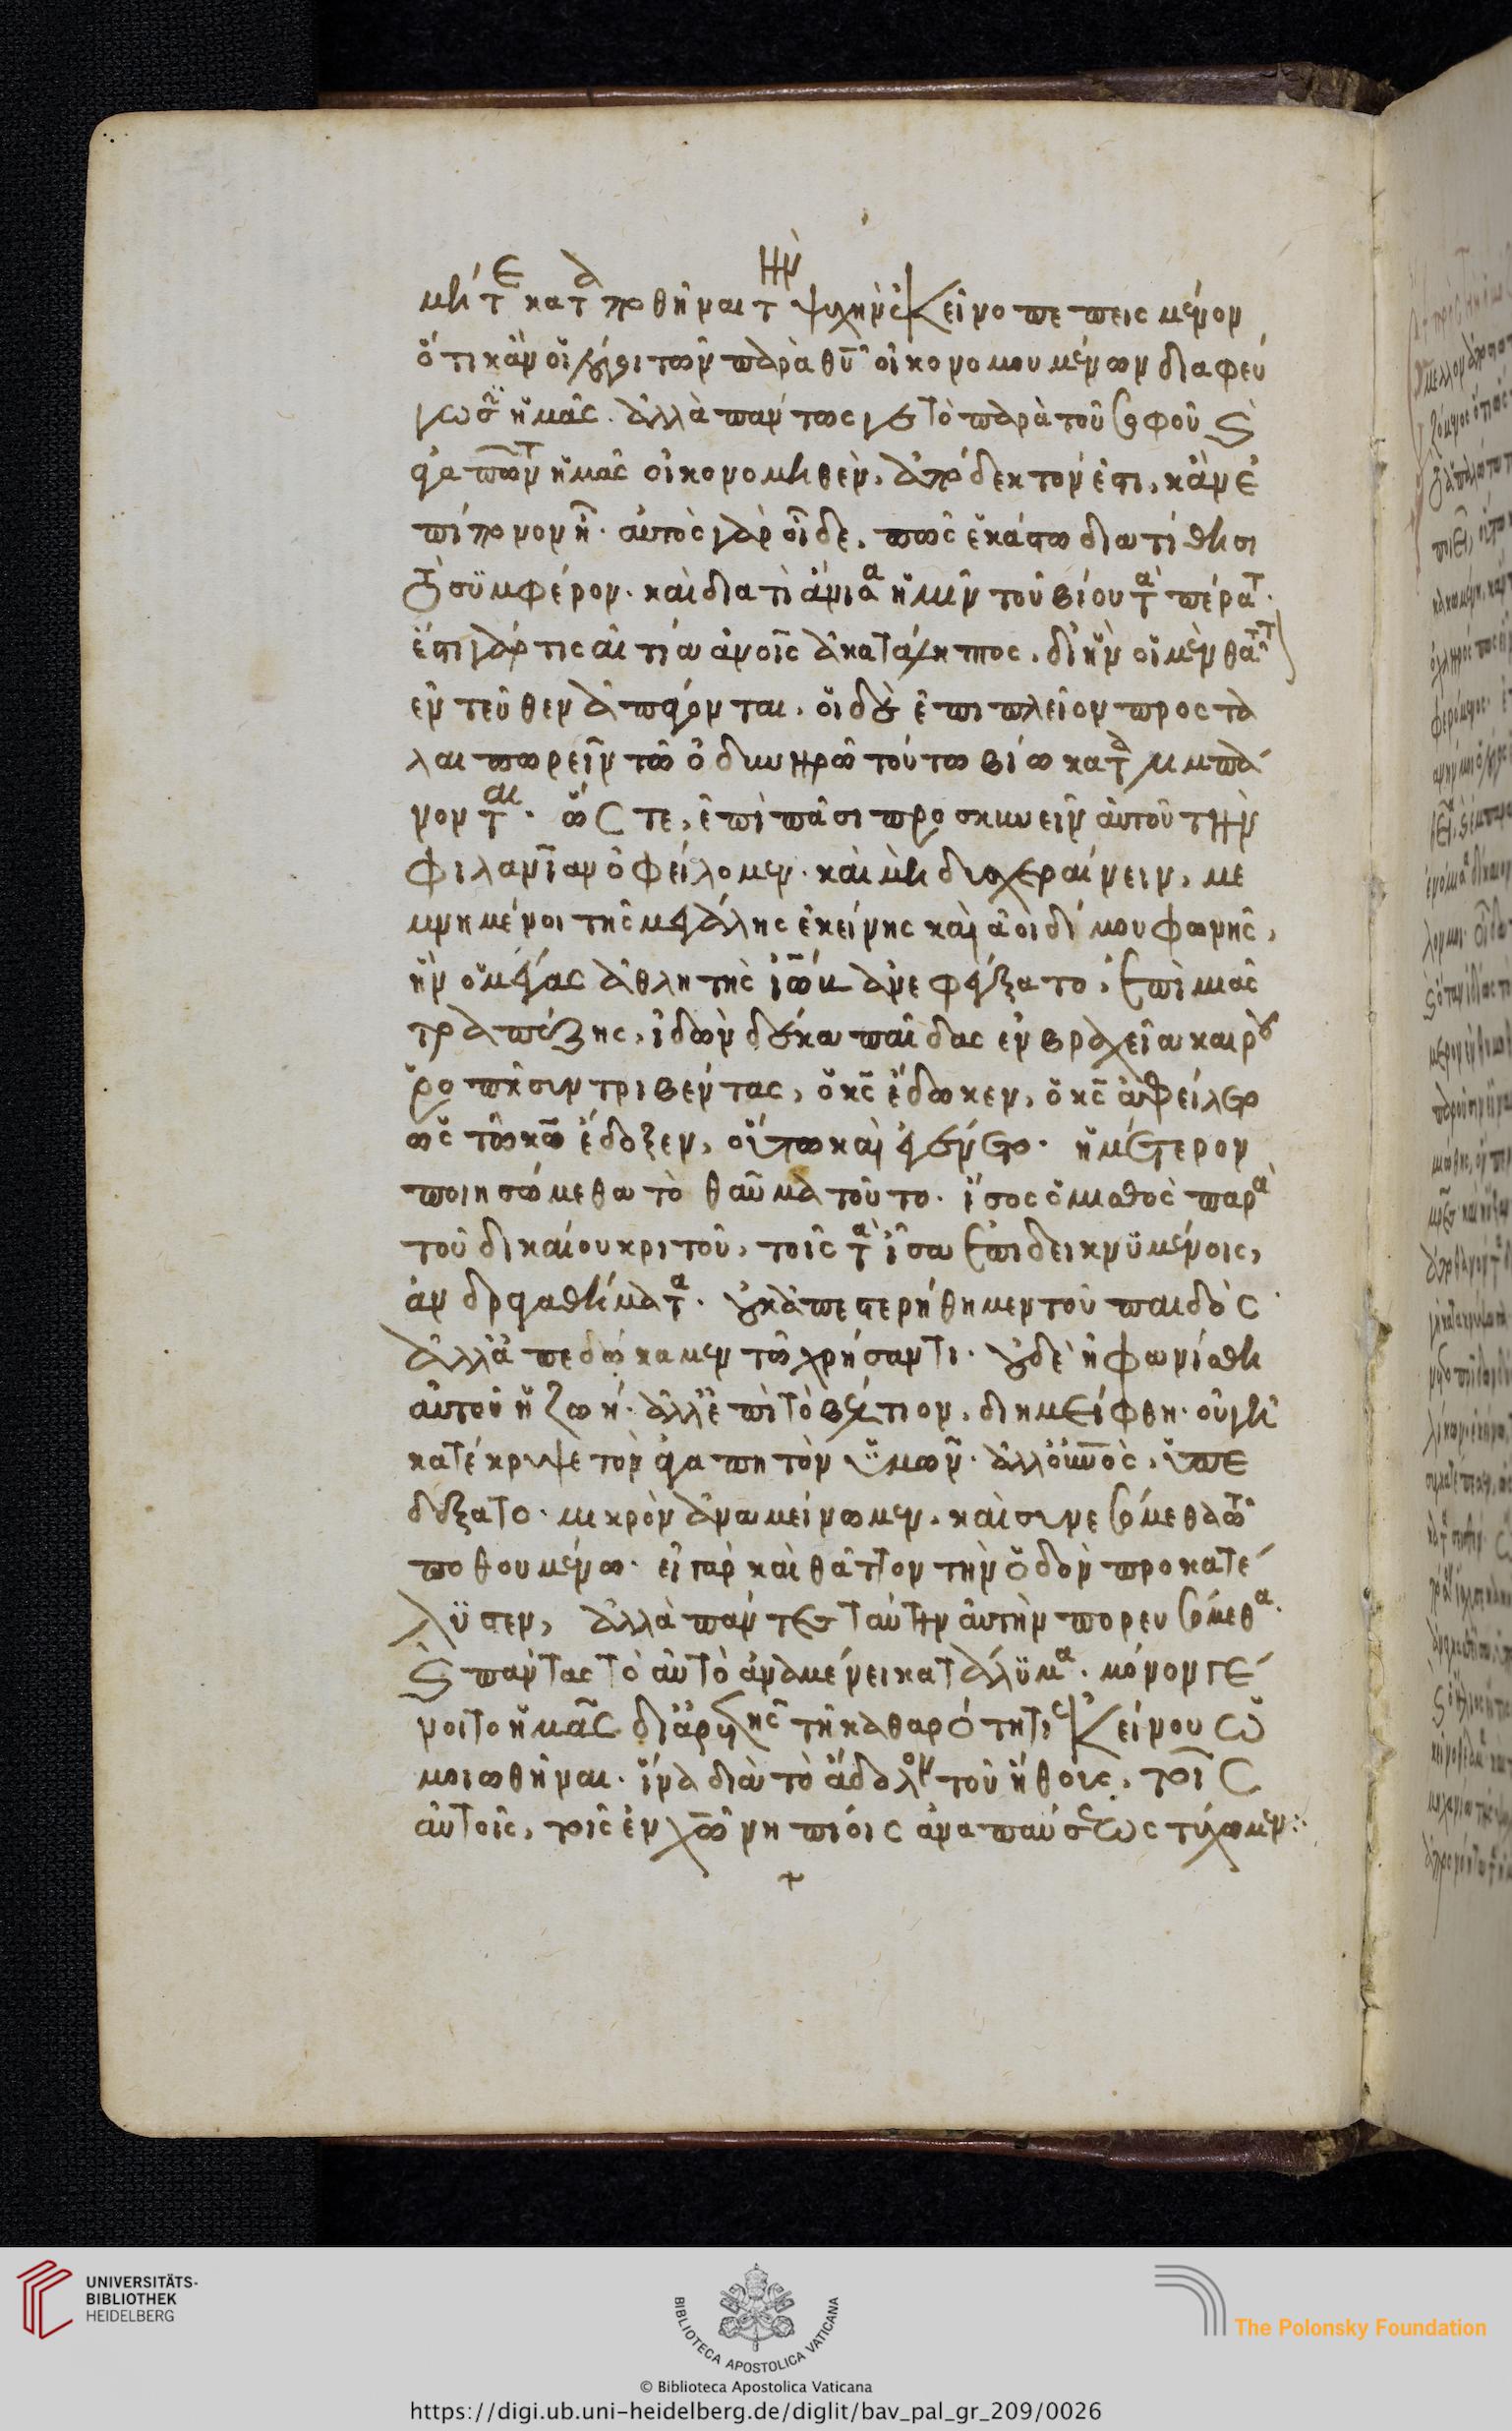 μήτε καταποθῆναι τὴν ψυχὴν ἐκεῖνο πεπεισμένον
ὅτι κἂν οἱ λόγοι τῶν παρὰ θυ οἰκονομουμένων διαφεύ
γωσιν ἡμᾶς. ἀλλὰ πάντως γε τὸ παρὰ τοῦ σοφοῦ καὶ
ἀγαπῶντος ἡμᾶς οἰκονομηθὲν, ἀπόδεκτόν ἐστι, κἂν ἐ
πίπονον ἦ. αὐτὸς γὰρ οἶδε, πῶς ἑκάστω διατίθησι
τὸ συμφέρον. καὶ διατί ἄνισα ἡμῖν τοῦ βίου τὰ πέρατα.
ἔστι γάρ τις αἰτία ἀνοις ἀκατάληπτος, δι' ἣν οἱ μὲν θᾶττον
ἐντεῦθεν ἀπάγονται, οἱ δὲ ἐπιπλεῖον προστα
λαιπωρεῖν τῶ ὀδυνηρῶ τούτω βίω καταλιμπά
νονται. ὥστε, ἐπὶ πᾶσι προσκυνεῖν αὐτοῦ τὴν
φιλανίαν ὀφείλομεν. καὶ μὴ δυσχεραίνειν, με
μνημένοι τῆς μεγάλης ἐκείνης καὶ ἀοιδίμου φωνῆς,
ἣν ὁ μέγας ἀθλητὴς ἰὼβ ἀνεφθέγξατο, ἐπὶ μιᾶς
τραπέζης, ἰδὼν δέκα παῖδας ἐν βραχεία καιροῦ
ῥοπῆ συντριβέντας, ὁ κς ἔδωκεν, ὁ κς ἀφείλετο
ὡς τῶ κω ἔδοξεν, οὕτω καὶ ἐγένετο. ἡμέτερον
ποιησώμεθα τὸ θαῦμα τοῦτο. ἴσος ὁ μισθὸς παρὰ
τοῦ δικαίου κριτοῦ, τοῖς τὰ ἴσα ἐπιδεικνυμένοις,
ἀνδραγαθήματα. οὐκ ἀπεστερήθημεν τοῦ παιδὸς
ἀλλ' ἀπεδώκαμεν τῶ χρήσαντι. οὐδὲ ἠφανίσθη
αὐτοῦ ἡ ζωή. ἀλλ' ἐπὶ τὸ βέλτιον, διημείφθη. οὐ γῆ
κατέκρυψε τὸν ἀγαπητὸν ὑμῶν. ἀλλ' ὁ οὐνος, ὑπε
δέξατο. μικρὸν ἀναμείνωμεν, καὶ συνεσόμεθα τῶ
ποθουμένω. εἰ γὰρ καὶ θᾶττον τὴν ὁδὸν προκατέ
λυσεν, ἀλλὰ πάντες ταύτην αὐτὴν πορευσόμεθα.
καὶ πάντας τὸ αὐτὸ ἀναμένει κατάλυμα. μόνον γέ
νοιτο ἡμᾶς δι' ἀρετῆς τῆ καθαρότητι ἐκείνου ὡ
μοιωθῆναι. ἵνα διὰ τὸ ἄδολον τοῦ ἤθους, τοῖς
αὐτοῖς, τοῖς ἐν χω νηπίοις ἀναπαύσεως τύχωμεν:
UNIVERSITÄTS-
BIBLIOTHEK
HEIDELBERG
BIBLIOTECA APOSTOLICA VATICANA
The Polonsky Foundation
© Biblioteca Apostolica Vaticana
https://digi.ub.uni-heidelberg.de/diglit/bav_pal_gr_209/0026